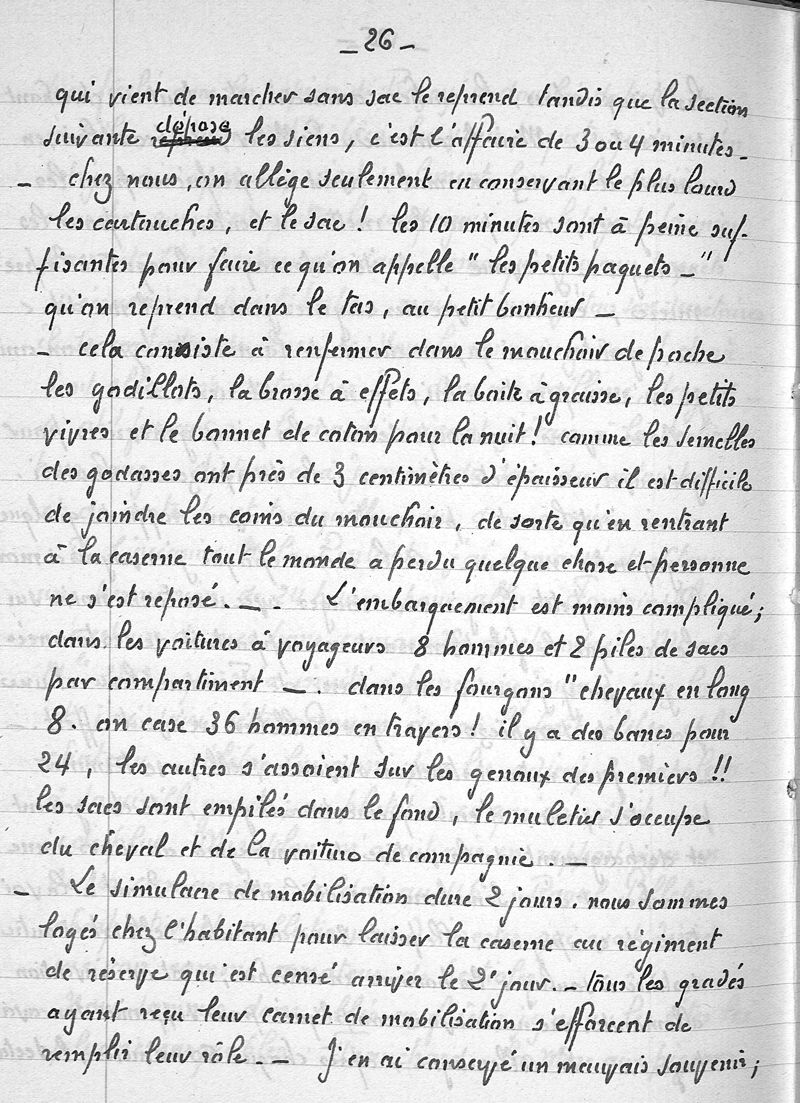 _ 26 _
qui vient de marcher sans sac le reprend tandis que la section
suivante dépose les siens, c'est l'affaire de 3 ou 4 minutes _
_ chez nous, on allège seulement en conservant le plus lourd
les cartouches, et le sac ! les 10 minutes sont à peine suf-
fisantes pour faire ce qu'on appelle " les petits paquets _ "
qu'on reprend dans le tas, au petit bonheur _
_ cela consiste à renfermer dans le mouchoir de poche
les godillots, la brosse à effets, la boite à graisse, les petits
vivres et le bonnet de coton pour la nuit ! comme les semelles
des godasses ont près de 3 centimètres d'épaisseur il est difficile
de joindre les coins du mouchoir, de sorte qu'en rentrant
à la caserne tout le monde a perdu quelque chose et personne
ne s'est reposé. _ . L'embarquement est moins compliqué ;
dans les voitures à voyageurs 8 hommes et 2 piles de sacs
par compartiment _ . dans les fourgons " chevaux en long
8. on case 36 hommes en travers ! il y a des bancs pour
24, les autres s'assoient sur les genoux des premiers !!
les sacs sont empilés dans le fond, le muletier s'occupe
du cheval et de la voiture de compagnie. _
_ Le simulacre de mobilisation dure 2 jours. nous sommes
logés chez l'habitant pour laisser la caserne au régiment
de réserve qui est censé arriver le 2e jour. _ tous les gradés
ayant reçu leur carnet de mobilisation s'efforcent de
remplir leur rôle. _ J'en ai conservé un mauvais souvenir ;